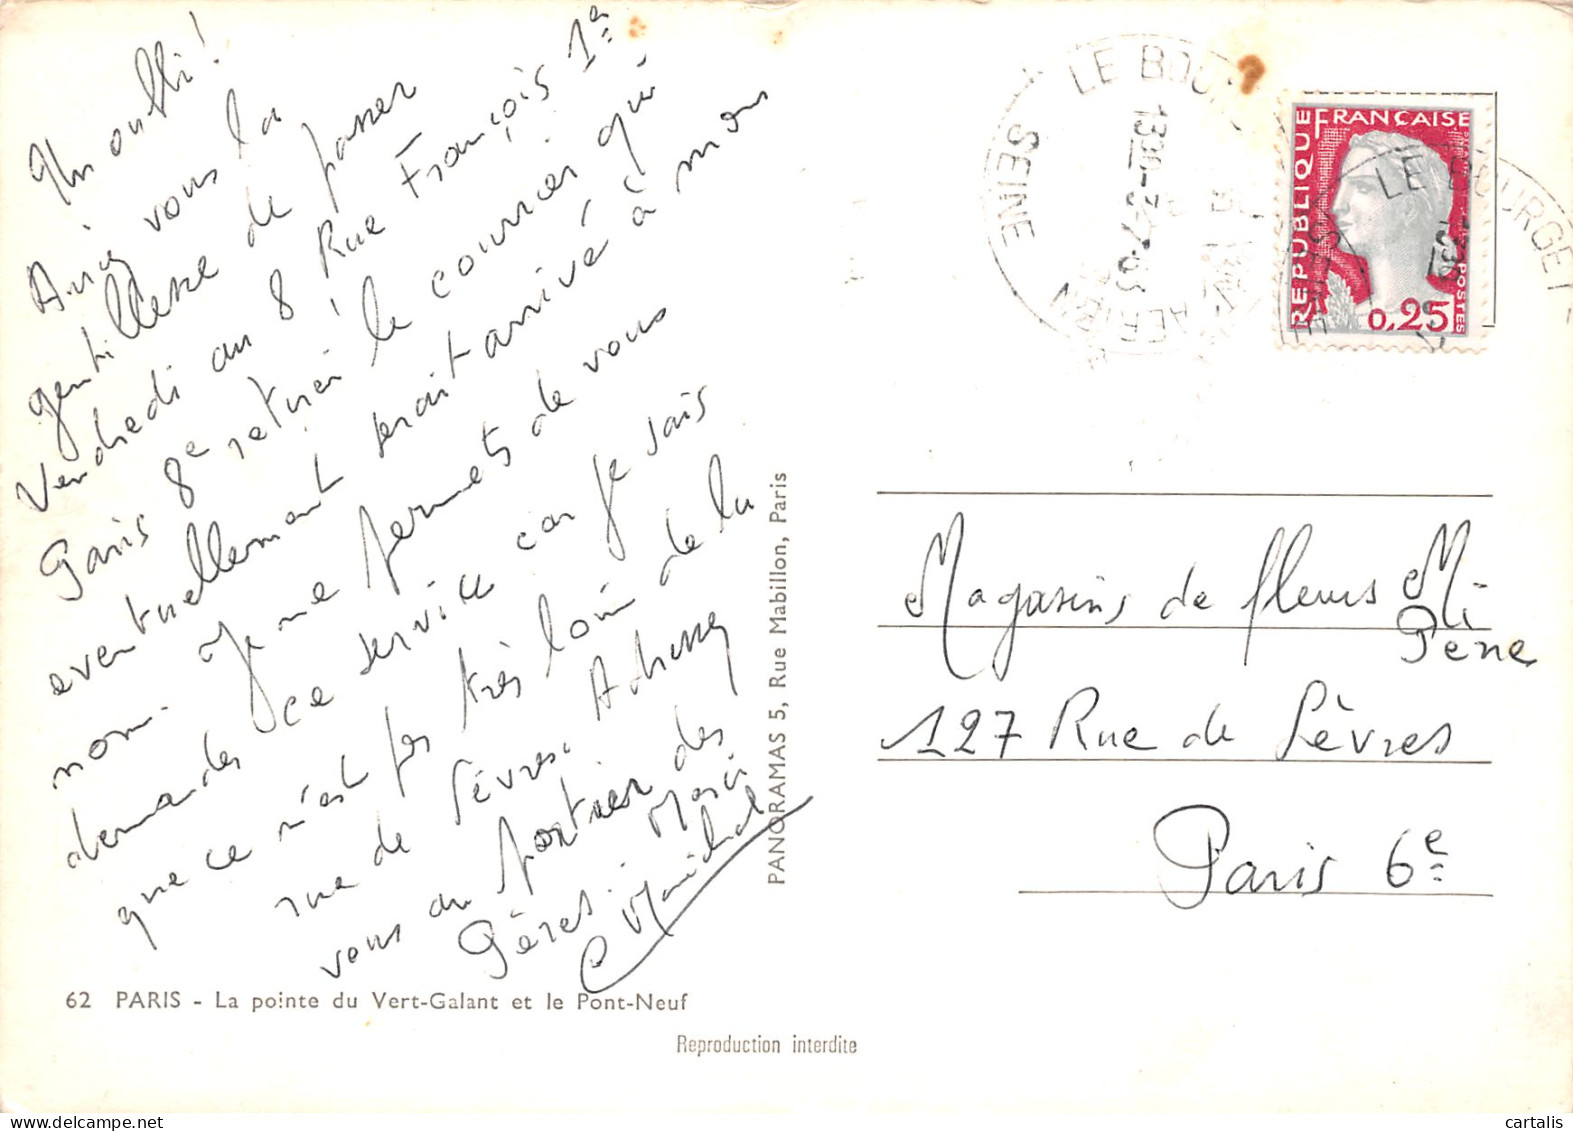 Un oubli!
Auriez vous la
gentillesse de passer
Vendredi au 8 Rue François 1er
Paris 8e retirer le courrier qui
eventuellement serait arrivé à mon
nom. Je me permets de vous
demander ce service car je sais
que ce n'est pas très loin de la
rue de Sèvres. Adressez
vous au portier des
Pères. Merci
62 PARIS - La pointe du Vert-Galant et le Pont-Neuf
Reproduction interdite
PANORAMAS 5, Rue Mabillon, Paris
LE BOURGET
SEINE
AERIEN
RÉPUBLIQUE FRANÇAISE
POSTES
0,25
LE BOURGET
Magasins de fleurs Mi
Pene
127 Rue de Sèvres
Paris 6e
cartalis